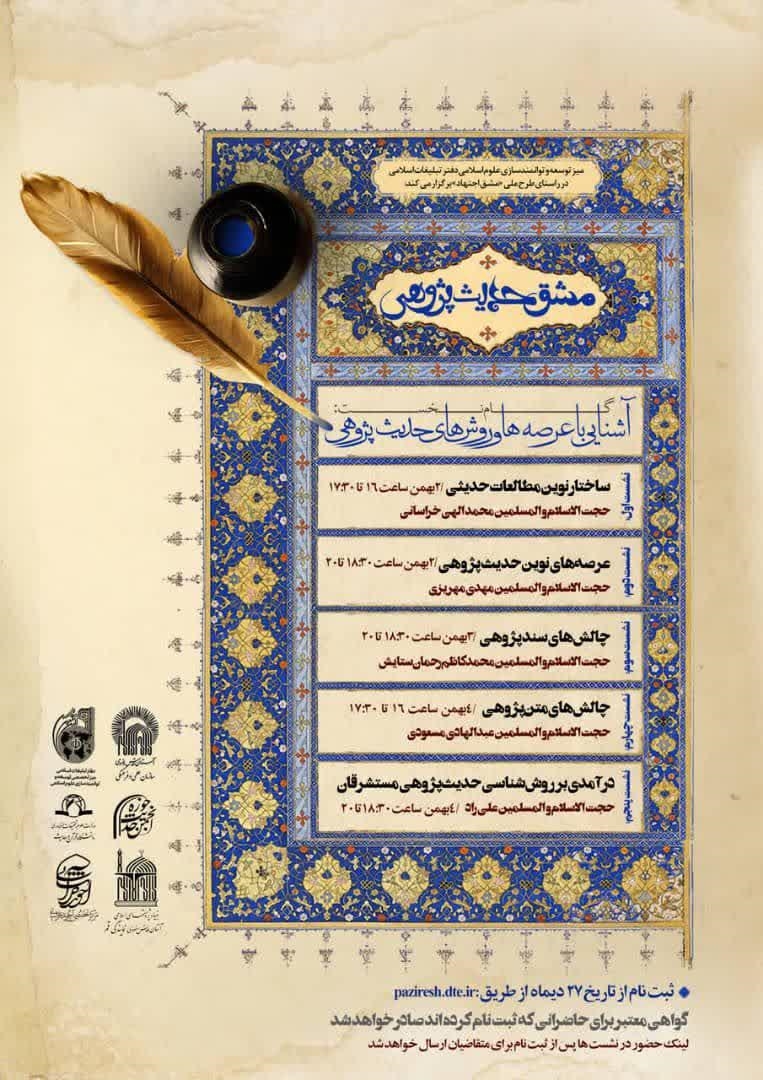 میز توسعه و توانمندسازی علوم اسلامی دفتر تبلیغات اسلامی
در راستای طرح ملی «مشق اجتهاد» برگزار می کند:
مشق حدیث پژوهی
گام نخست:
آشنایی با عرصه ها و روش های حدیث پژوهی
نشست اول
ساختار نوین مطالعات حدیثی /۲بهمن ساعت ۱۶ تا ۱۷:۳۰
حجت الاسلام والمسلمین محمد الهی خراسانی
نشست دوم
عرصه‌های نوین حدیث پژوهی /۲بهمن ساعت ۱۸:۳۰ تا ۲۰
حجت الاسلام والمسلمین مهدی مهریزی
نشست سوم
چالش های سندپژوهی /۳بهمن ساعت ۱۸:۳۰ تا ۲۰
حجت الاسلام والمسلمین محمدکاظم رحمان ستایش
نشست چهارم
چالش های متن پژوهی /۴بهمن ساعت ۱۶ تا ۱۷:۳۰
حجت الاسلام والمسلمین عبدالهادی مسعودی
نشست پنجم
درآمدی بر روش شناسی حدیث پژوهی مستشرقان
حجت الاسلام والمسلمین علی راد /۴بهمن ساعت ۱۸:۳۰ تا ۲۰
دفتر تبلیغات اسلامی
میز تخصصی توسعه و
توانمندسازی علوم اسلامی
آستان قدس رضوی
سازمان علمی و فرهنگی
دانشگاه قرآن و حدیث
انجمن حدیث حوزه
بنیاد پژوهشهای اسلامی
آستان قدس رضوی نمایندگی قم
ثبت نام از تاریخ ۲۷ دیماه از طریق: paziresh.dte.ir
گواهی معتبر برای حاضرانی که ثبت نام کرده اند صادر خواهد شد
لینک حضور در نشست ها پس از ثبت نام برای متقاضیان ارسال خواهد شد